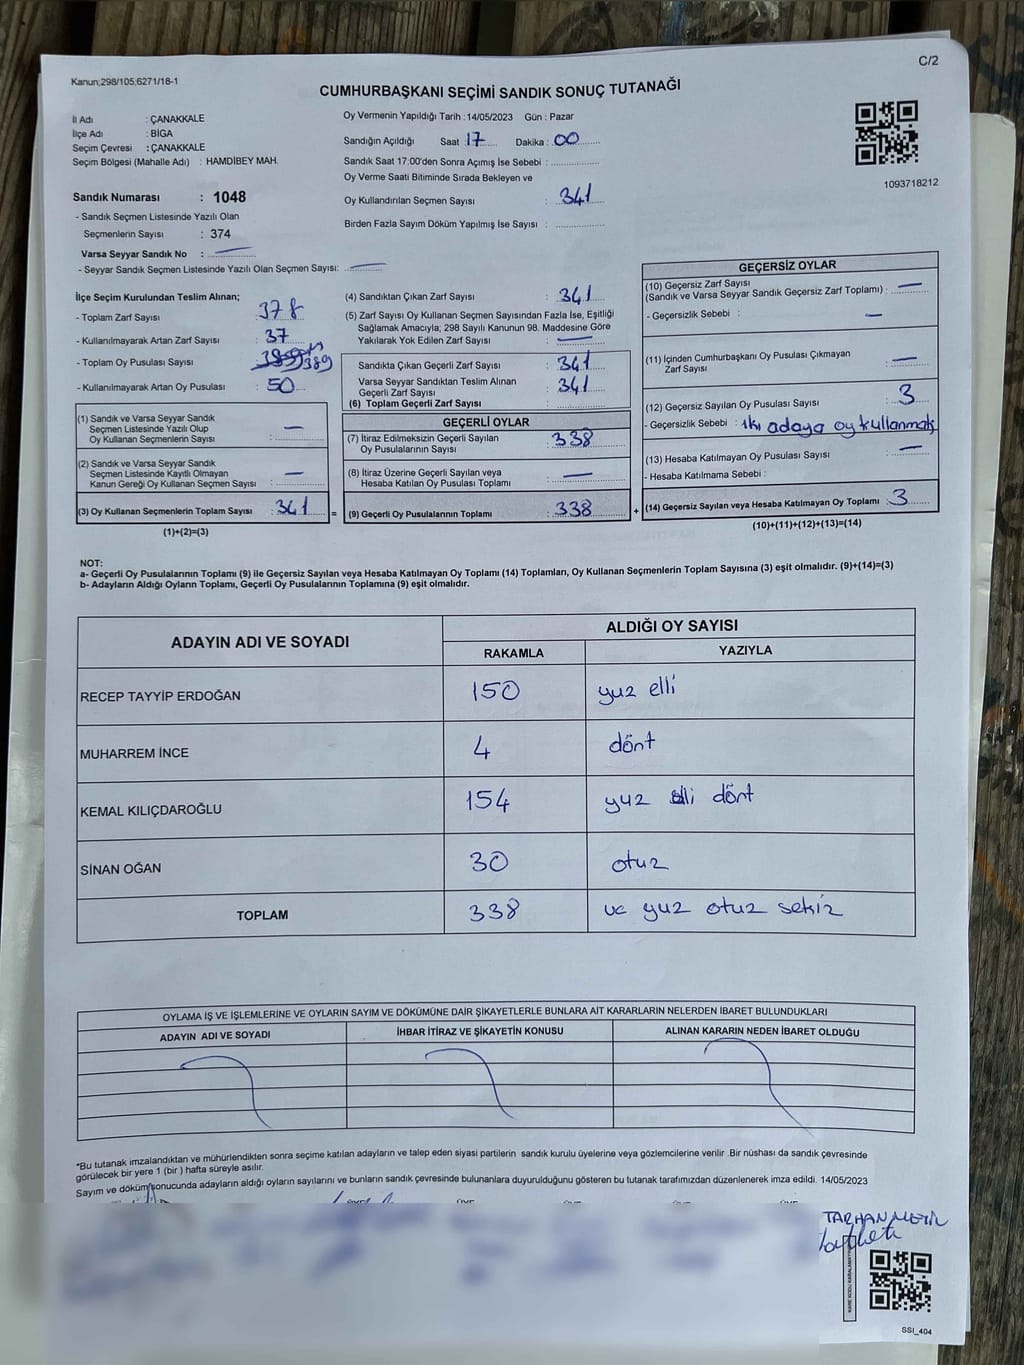 C/2
Kanun;298/105;6271/18-1
CUMHURBAŞKANI SEÇİMİ SANDIK SONUÇ TUTANAĞI
İl Adı : ÇANAKKALE
İlçe Adı : BİGA
Seçim Çevresi : ÇANAKKALE
Seçim Bölgesi (Mahalle Adı) : HAMDİBEY MAH.
Sandık Numarası : 1048
- Sandık Seçmen Listesinde Yazılı Olan
Seçmenlerin Sayısı : 374
Varsa Seyyar Sandık No : —
- Seyyar Sandık Seçmen Listesinde Yazılı Olan Seçmen Sayısı: —
Oy Vermenin Yapıldığı Tarih : 14/05/2023 Gün : Pazar
Sandığın Açıldığı Saat 17 Dakika : 00
Sandık Saat 17:00'den Sonra Açımış İse Sebebi :
Oy Verme Saati Bitiminde Sırada Bekleyen ve
Oy Kullandırılan Seçmen Sayısı : 341
Birden Fazla Sayım Döküm Yapılmış İse Sayısı :
1093718212
İlçe Seçim Kurulundan Teslim Alınan;
- Toplam Zarf Sayısı : 378
- Kullanılmayarak Artan Zarf Sayısı : 37
- Toplam Oy Pusulası Sayısı : 389
- Kullanılmayarak Artan Oy Pusulası : 50
(1) Sandık ve Varsa Seyyar Sandık
Seçmen Listesinde Yazılı Olup
Oy Kullanan Seçmenlerin Sayısı : —
(2) Sandık ve Varsa Seyyar Sandık
Seçmen Listesinde Kayıtlı Olmayan
Kanun Gereği Oy Kullanan Seçmen Sayısı : —
(3) Oy Kullanan Seçmenlerin Toplam Sayısı : 341 =
(1)+(2)=(3)
(4) Sandıktan Çıkan Zarf Sayısı : 341
(5) Zarf Sayısı Oy Kullanan Seçmen Sayısından Fazla İse, Eşitliği
Sağlamak Amacıyla; 298 Sayılı Kanunun 98. Maddesine Göre
Yakılarak Yok Edilen Zarf Sayısı : —
Sandıkta Çıkan Geçerli Zarf Sayısı : 341
Varsa Seyyar Sandıktan Teslim Alınan
Geçerli Zarf Sayısı : 341
(6) Toplam Geçerli Zarf Sayısı :
GEÇERLİ OYLAR
(7) İtiraz Edilmeksizin Geçerli Sayılan
Oy Pusulalarının Sayısı : 338
(8) İtiraz Üzerine Geçerli Sayılan veya
Hesaba Katılan Oy Pusulası Toplamı : —
(9) Geçerli Oy Pusulalarının Toplamı : 338 +
GEÇERSİZ OYLAR
(10) Geçersiz Zarf Sayısı
(Sandık ve Varsa Seyyar Sandık Geçersiz Zarf Toplamı) : —
- Geçersizlik Sebebi : —
(11) İçinden Cumhurbaşkanı Oy Pusulası Çıkmayan
Zarf Sayısı : —
(12) Geçersiz Sayılan Oy Pusulası Sayısı : 3
- Geçersizlik Sebebi : iki adaya oy kullanmak
(13) Hesaba Katılmayan Oy Pusulası Sayısı : —
- Hesaba Katılmama Sebebi :
(14) Geçersiz Sayılan veya Hesaba Katılmayan Oy Toplamı : 3
(10)+(11)+(12)+(13)=(14)
NOT:
a- Geçerli Oy Pusulalarının Toplamı (9) ile Geçersiz Sayılan veya Hesaba Katılmayan Oy Toplamı (14) Toplamları, Oy Kullanan Seçmenlerin Toplam Sayısına (3) eşit olmalıdır. (9)+(14)=(3)
b- Adayların Aldığı Oyların Toplamı, Geçerli Oy Pusulalarının Toplamına (9) eşit olmalıdır.
ADAYIN ADI VE SOYADI ALDIĞI OY SAYISI
RAKAMLA YAZIYLA
RECEP TAYYİP ERDOĞAN 150 yuz elli
MUHARREM İNCE 4 dört
KEMAL KILIÇDAROĞLU 154 yuz elli dört
SİNAN OĞAN 30 otuz
TOPLAM 338 uc yuz otuz sekiz
OYLAMA İŞ VE İŞLEMLERİNE VE OYLARIN SAYIM VE DÖKÜMÜNE DAİR ŞİKAYETLERLE BUNLARA AİT KARARLARIN NELERDEN İBARET BULUNDUKLARI
ADAYIN ADI VE SOYADI İHBAR İTİRAZ VE ŞİKAYETİN KONUSU ALINAN KARARIN NEDEN İBARET OLDUĞU
*Bu tutanak imzalandıktan ve mühürlendikten sonra seçime katılan adayların ve talep eden siyasi partilerin sandık kurulu üyelerine veya gözlemcilerine verilir .Bir nüshası da sandık çevresinde
görülecek bir yere 1 (bir ) hafta süreyle asılır.
Sayım ve döküm sonucunda adayların aldığı oyların sayılarını ve bunların sandık çevresinde bulunanlara duyurulduğunu gösteren bu tutanak tarafımızdan düzenlenerek imza edildi. 14/05/2023
TARHAN METİN
SSI_404